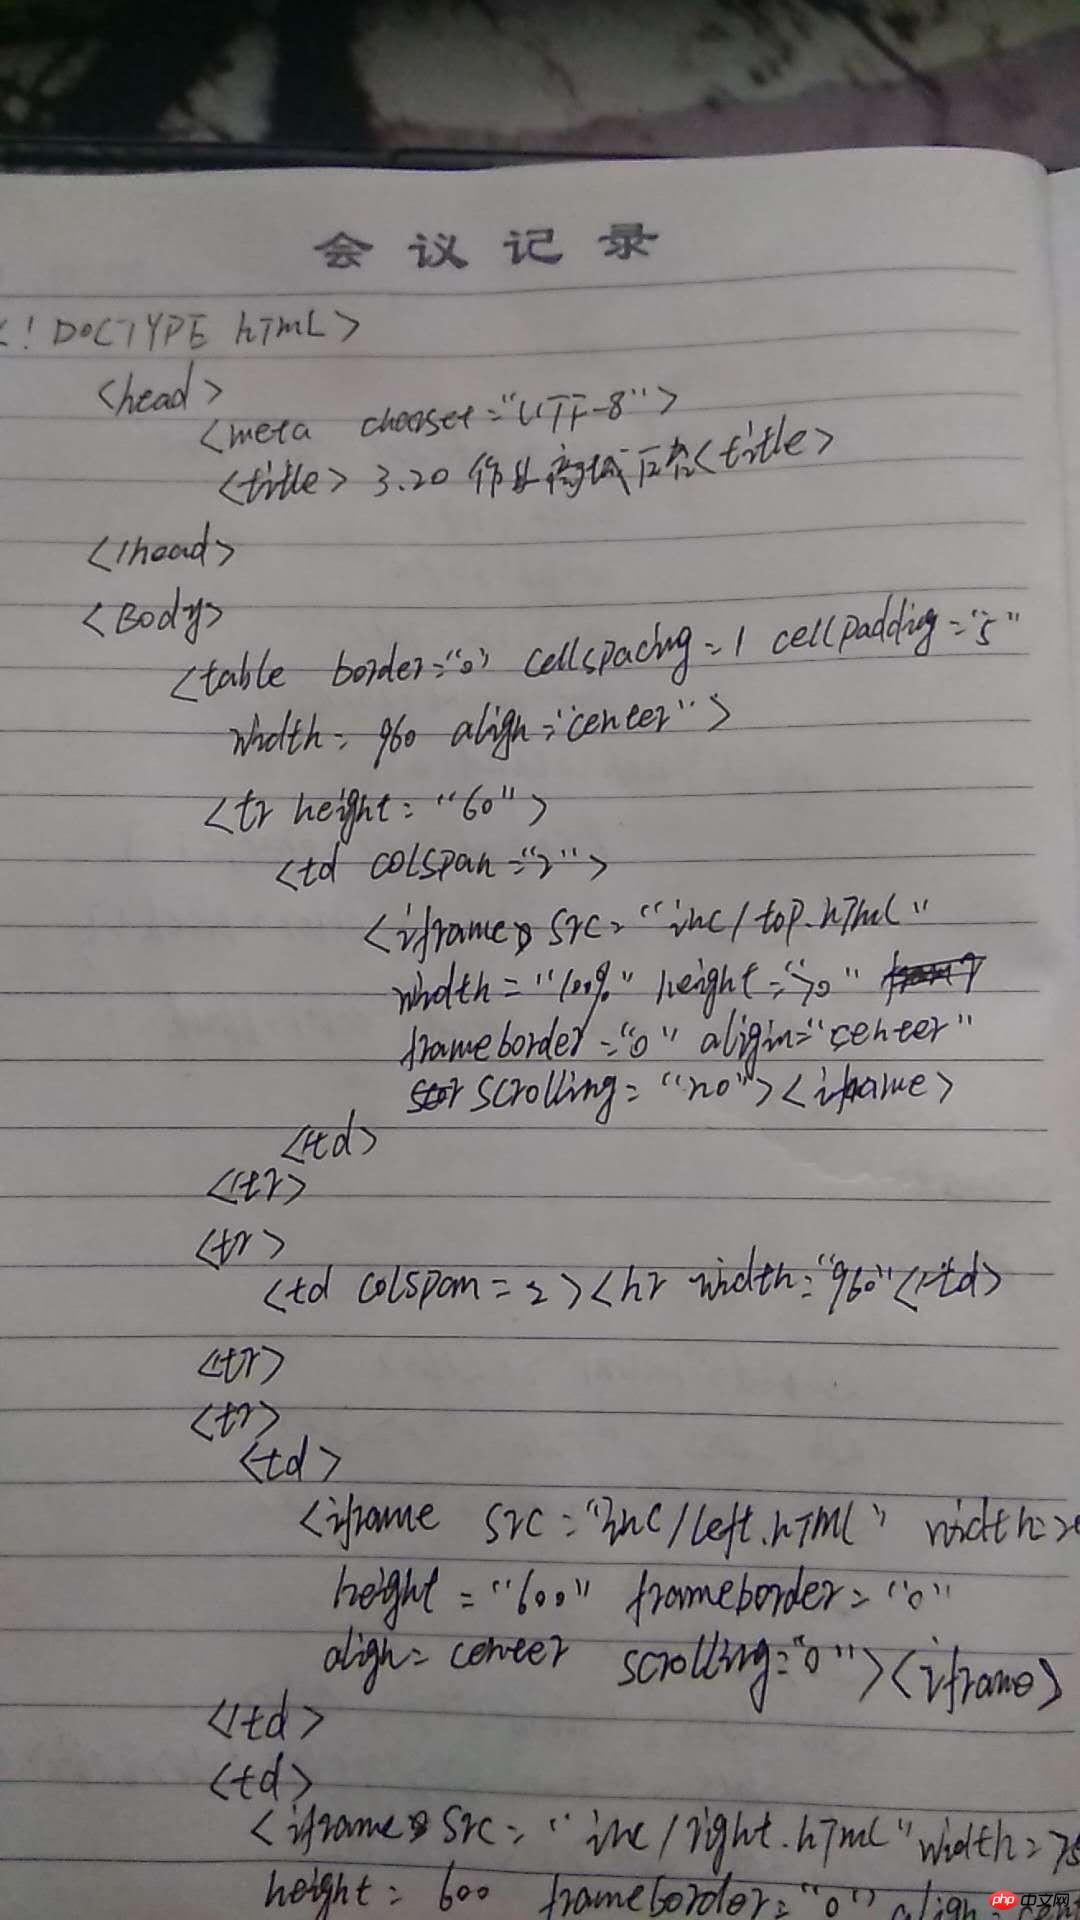 会议记录
<!DOCTYPE hTmL>
<head>
<meta charset="UTF-8">
<title> 3.20 作业 后台<title>
</head>
<Body>
<table border="0" cellspacing=1 cellpadding="5"
width=960 align="center">
<tr height="60">
<td colspan="2">
<iframe src="inc/top.hTmL"
width="100%" height="70"
frameborder="0" align="center"
scrolling="no"><iframe>
</td>
</tr>
<tr>
<td colspan=2><hr width="960"</td>
</tr>
<tr>
<td>
<iframe src="inc/left.hTmL" width=
height="600" frameborder="0"
align=center scrolling="0"><iframe>
</td>
<td>
<iframe src="inc/right.hTmL" width=75
height=600 frameborder="0" align=cent
php中文网